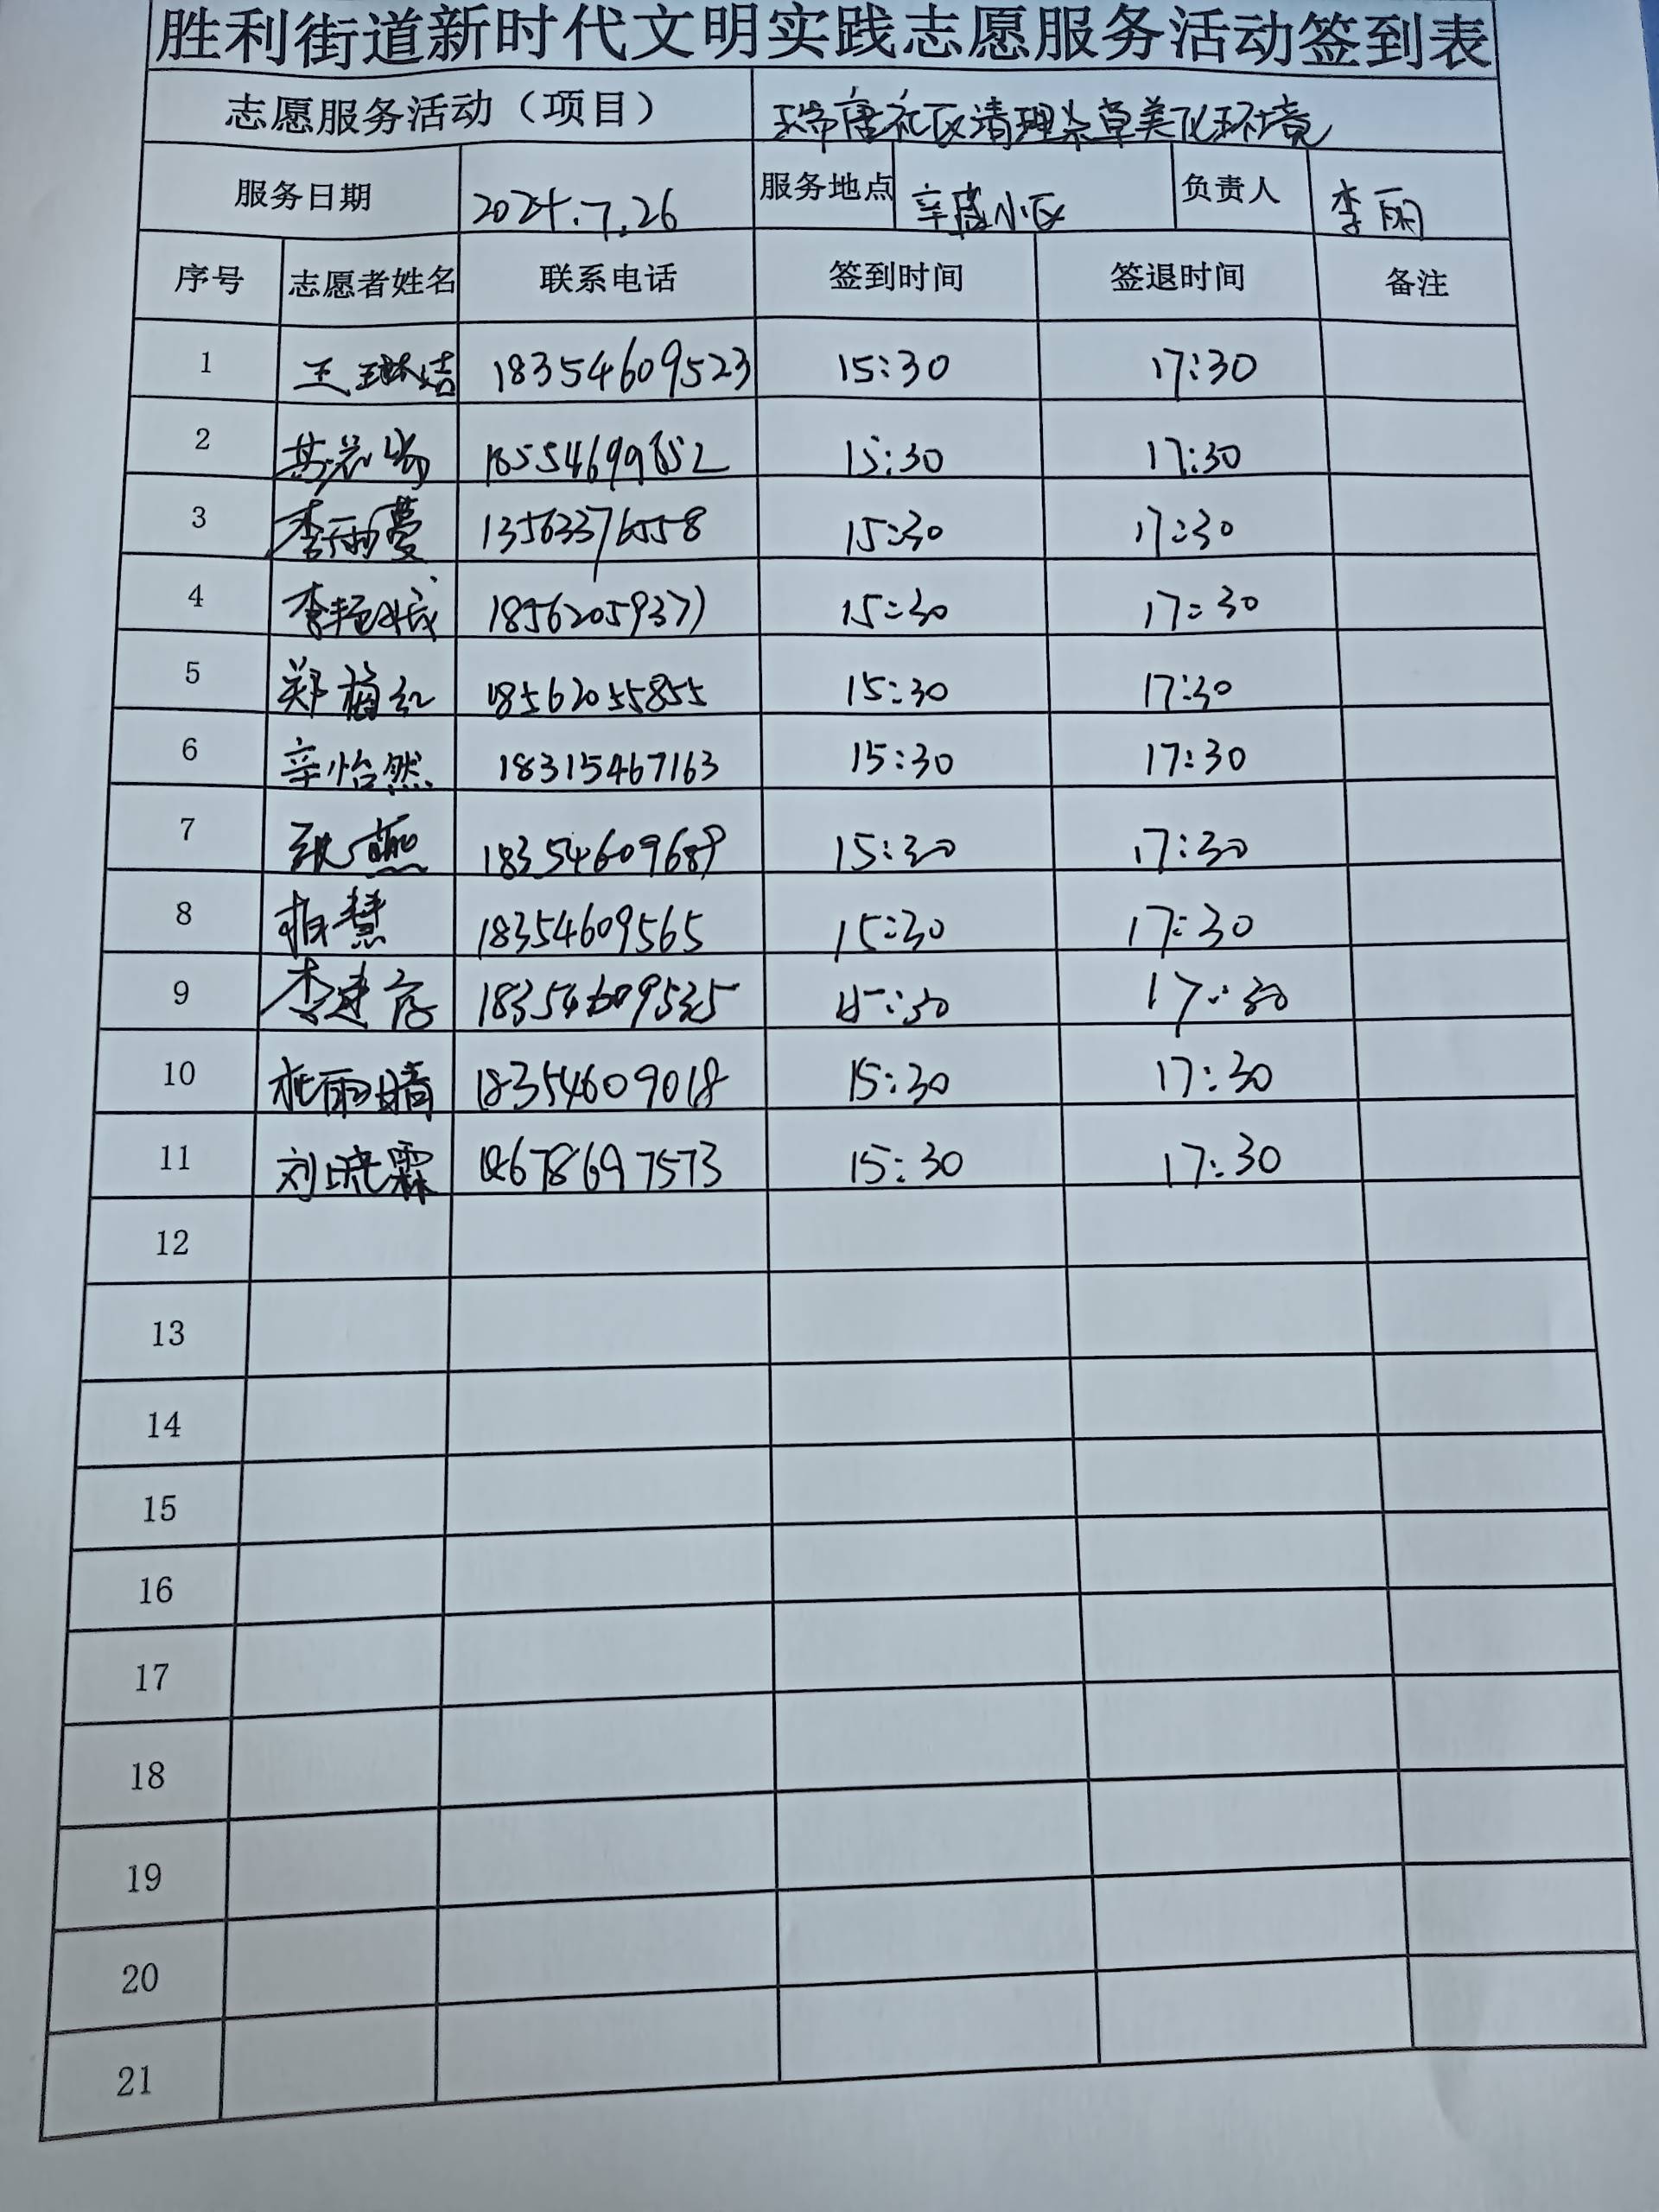 胜利街道新时代文明实践志愿服务活动签到表
志愿服务活动（项目） 瑞康社区清理杂草美化环境
服务日期 2024.7.26 服务地点 辛盛小区 负责人 李丽
序号 志愿者姓名 联系电话 签到时间 签退时间 备注
1 王琳洁 18354609523 15:30 17:30
2 15:30 17:30
3 李雨蔓 13563376558 15:30 17:30
4 李艳成 18562059377 15:30 17:30
5 郑梅红 18562055855 15:30 17:30
6 辛怡然 18315467163 15:30 17:30
7 张燕 18354609689 15:30 17:30
8 柏慧 18354609565 15:30 17:30
9 李建 18354609535 15:30 17:30
10 雨晴 18354609018 15:30 17:30
11 刘晓霖 18678697573 15:30 17:30
12
13
14
15
16
17
18
19
20
21